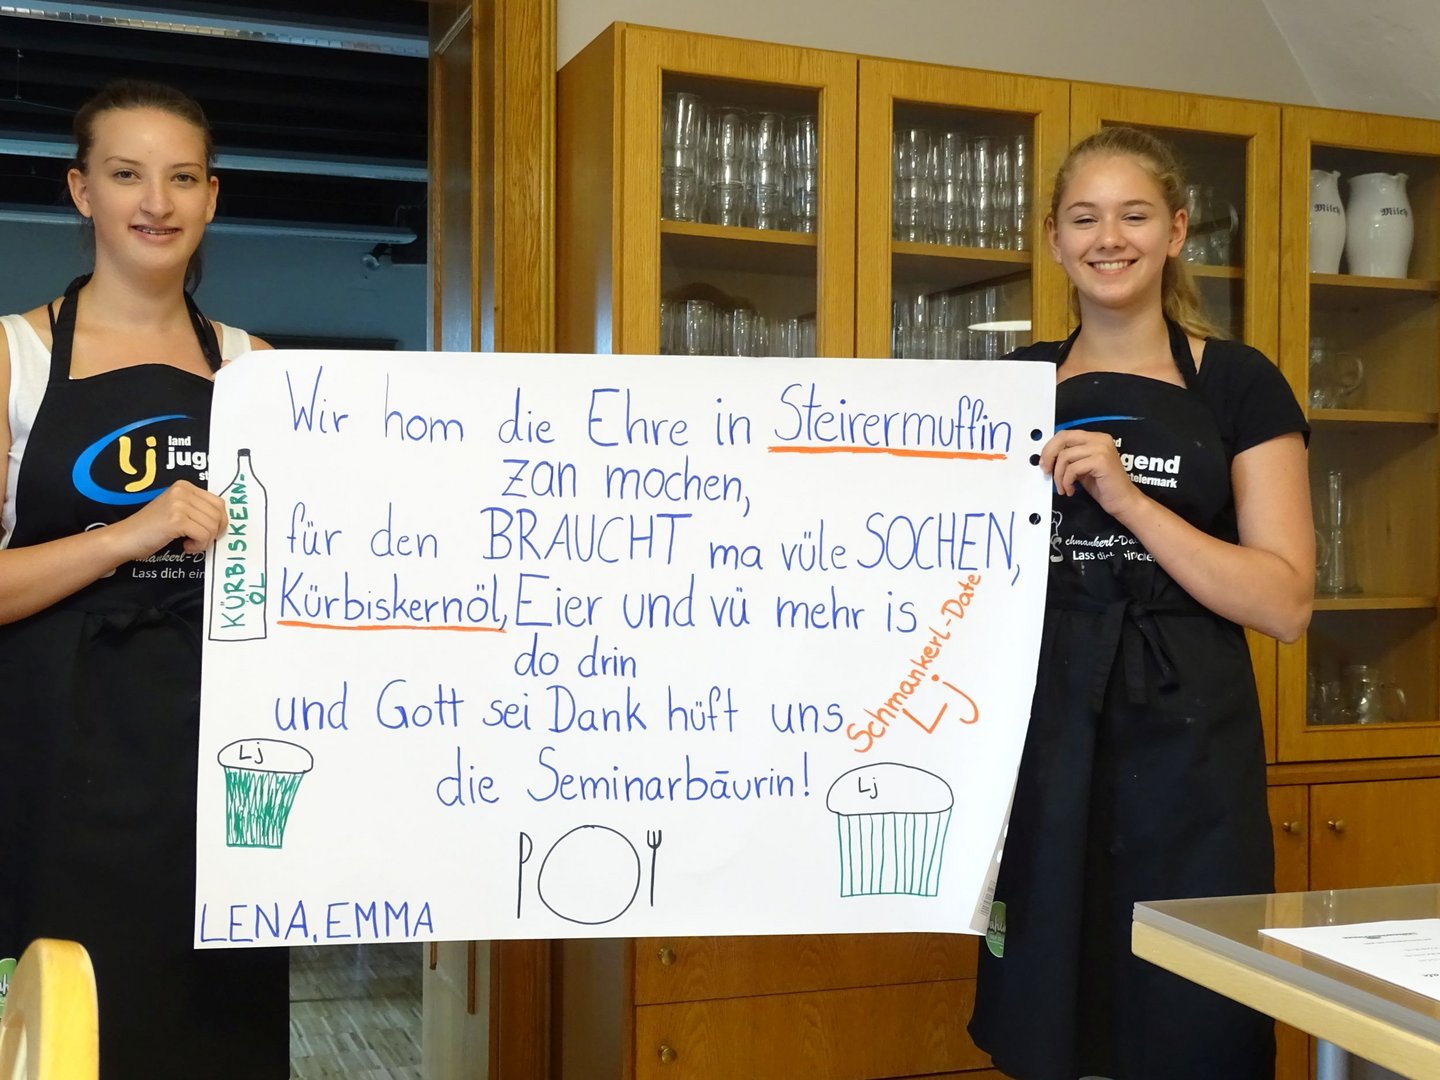 Wir hom die Ehre in Steirermuffin
zan mochen,
für den BRAUCHT ma vüle SOCHEN,
Kürbiskernöl, Eier und vü mehr is
do drin
und Gott sei Dank hüft uns
die Seminarbäurin!
Schmankerl-Date
Lj
KÜRBISKERN-
ÖL
Lj
Lj
LENA, EMMA
lj
land
jug
st
chmankerl-D
Lass dich ein
gend
steiermark
chmankerl-Da
Lass dich
Milch
Milch